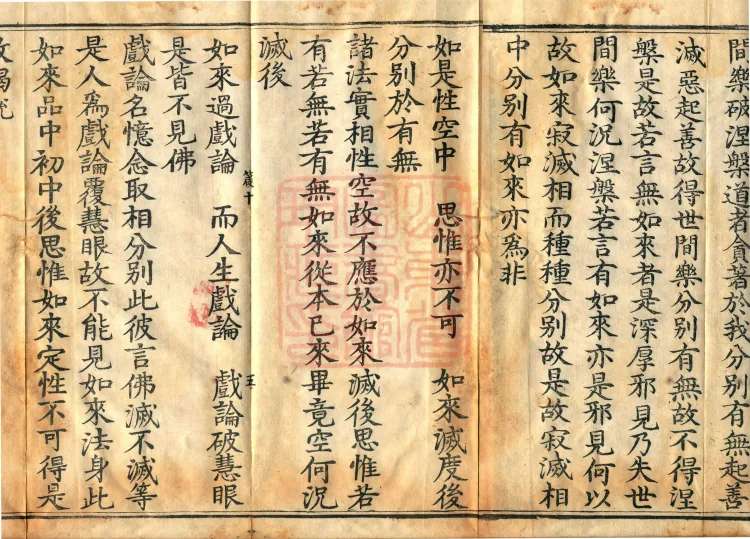 間樂破涅槃道者貪著於我分別有無起善
滅惡起善故得世間樂分別有無故不得涅
槃是故若言無如來者是深厚邪見乃失世
間樂何況涅槃若言有如來亦是邪見何以
故如來寂滅相而種種分別故是故寂滅相
中分別有如來亦為非
如是性空中 思惟亦不可 如來滅度後
分別於有無
諸法實相性空故不應於如來滅後思惟若
有若無若有無如來從本已來畢竟空何況
滅後
如來過戲論 而人生戲論 戲論破慧眼
是皆不見佛
戲論名憶念取相分別此彼言佛滅不滅等
是人為戲論覆慧眼故不能見如來法身此
如來品中初中後思惟如來定性不可得是
故偈說